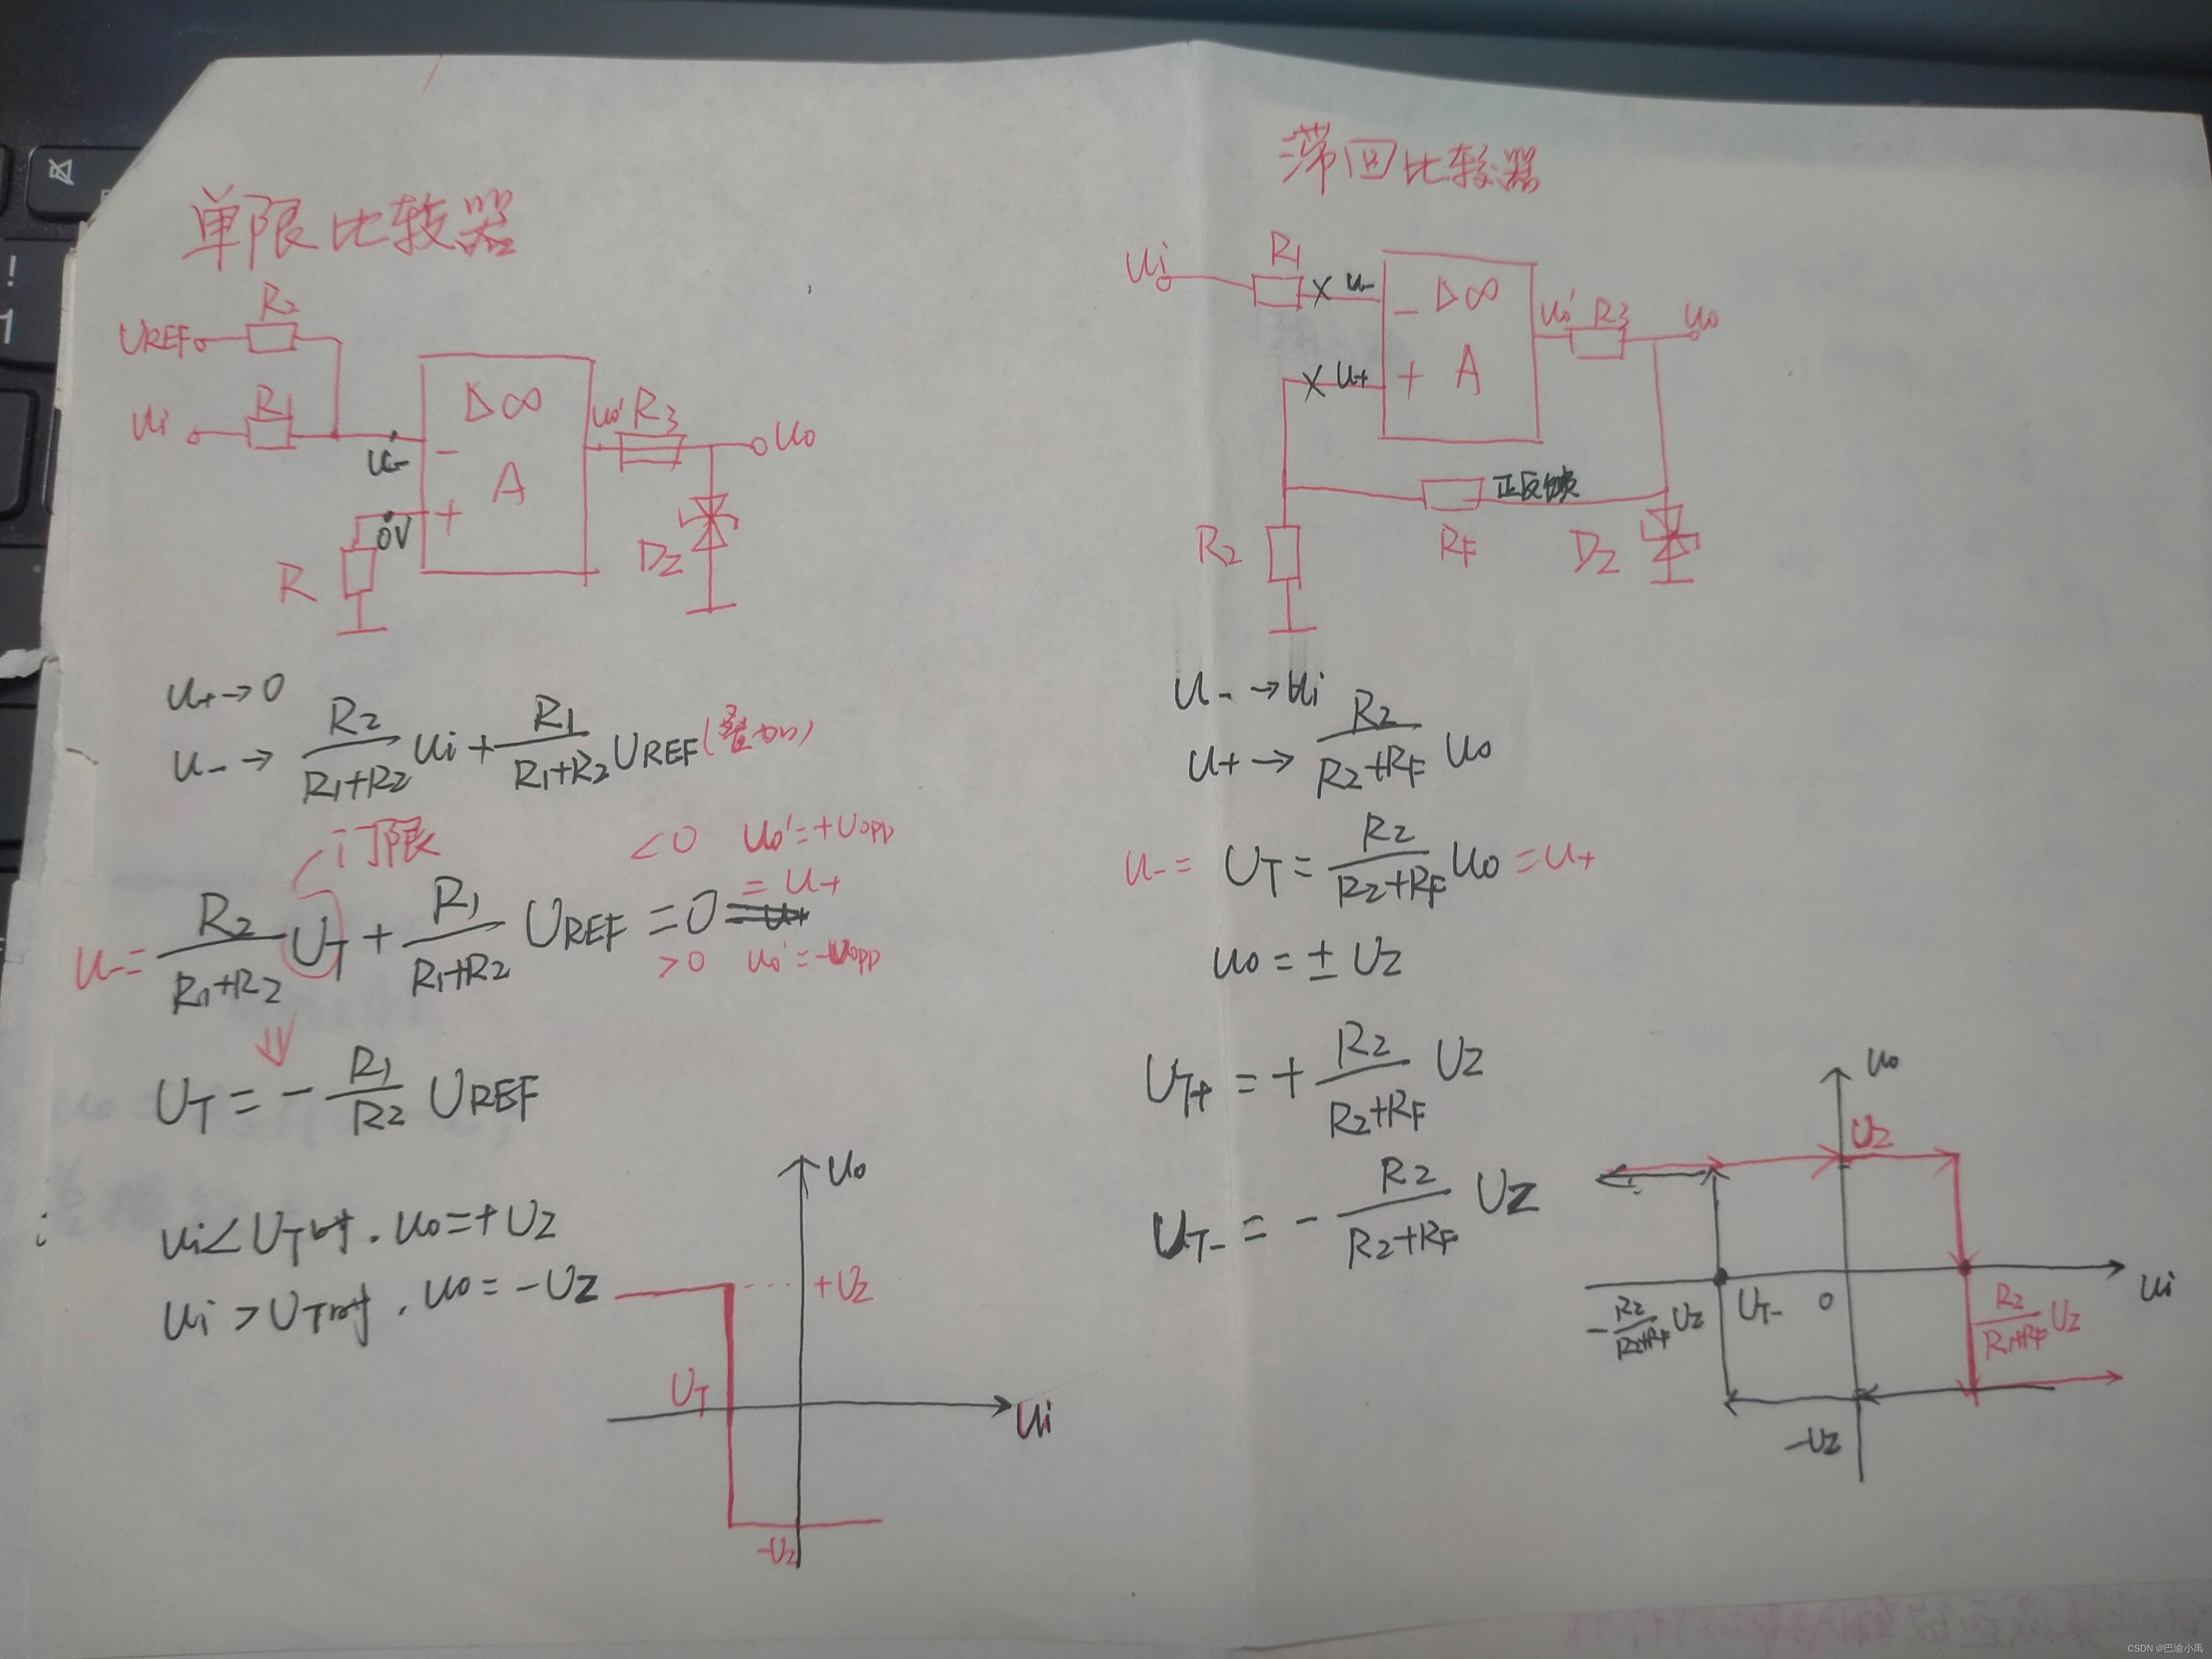 单限比较器
R2
UREF
Ui
R1
u-
0V
R
- ▷∞
+ A
uo' R3
uo
DZ
u+→0
u-→ R2/(R1+R2) ui + R1/(R1+R2) UREF (叠加)
门限
<0 uo'=+Uopp
u-= R2/(R1+R2) UT + R1/(R1+R2) UREF =0 =u+
>0 uo'=-Uopp
⇓
UT=- R1/R2 UREF
ui<UT时.uo=+UZ
ui>UT时.uo=-UZ
uo
+UZ
UT
ui
-UZ
滞回比较器
ui
R1
× u-
× u+
- ▷∞
+ A
uo' R3
uo
正反馈
R2
RF
DZ
u-→ui
u+→ R2/(R2+RF) uo
u-= UT= R2/(R2+RF) uo =u+
uo=±UZ
UT+=+ R2/(R2+RF) UZ
UT-=- R2/(R2+RF) UZ
uo
UZ
ui
- R2/(R2+RF) UZ
UT-
0
R2/(R1+RF) UZ
-UZ
! 1
CSDN @巴渝小禹